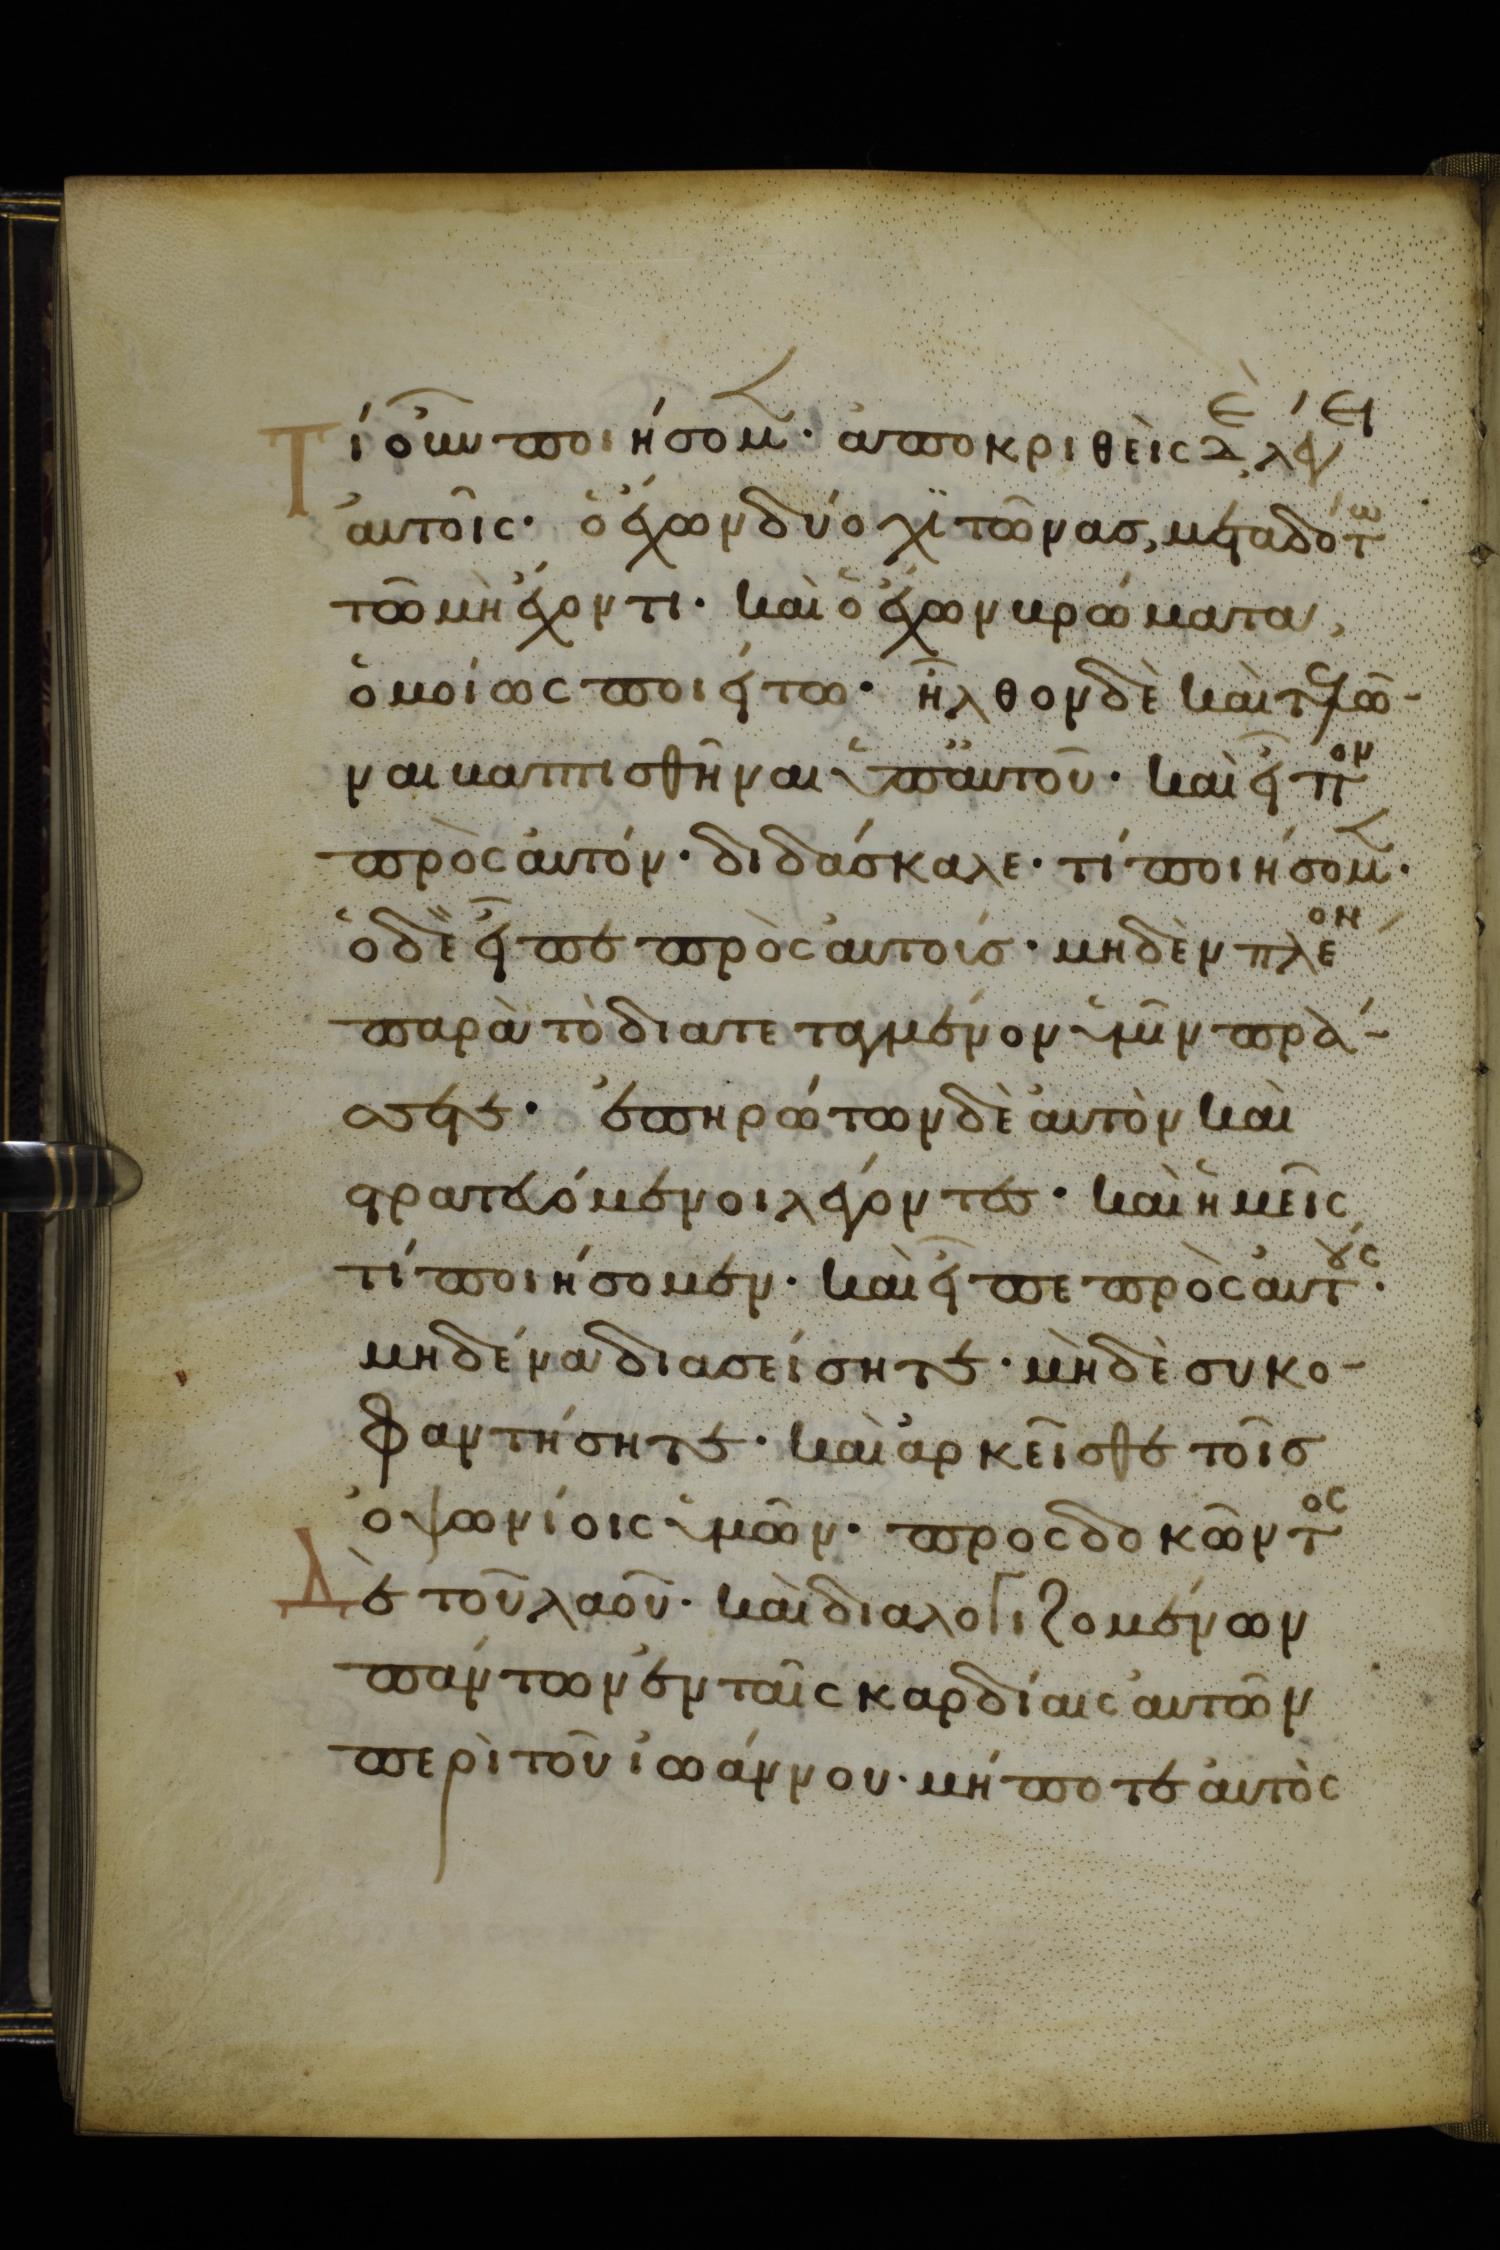 Τί οὖν ποιήσομ· ἀποκριθεὶς δὲ λέγει
ἀυτοῖς· ὁ ἔχων δύο χϊτῶνασ, μεταδότω
τῶ μὴ ἔχοντι· καὶ ὁ ἔχων βρώματα,
ὁμοίως ποιείτω· ἦλθον δὲ καὶ τελῶ-
ναι βαπτισθῆναι ὑπ ἀυτοῦ· καὶ εἶπον
πρὸς ἀυτόν· διδάσκαλε· τί ποιήσομ·
ὁ δὲ εἶπε πρὸς ἀυτούσ· μηδὲν πλέον
παρὰ τὸ διατεταγμένον ὑμῖν πρά-
σσετε· ἐπηρώτων δὲ ἀυτὸν καὶ
στρατευόμενοι λέγοντες· καὶ ἡμεῖς
τί ποιήσομεν· καὶ εἶπε πρὸς ἀυτούς·
μηδένα διασείσητε· μὴδὲ συκο-
φαντήσητε· καὶ ἀρκεῖσθε τοῖσ
ὀψωνίοις ὑμῶν· προςδοκῶντος
Δὲ τοῦ λαοῦ· καὶ διαλογιζομένων
πάντων ἐν ταῖς καρδίαις ἀυτῶν
περὶ τοῦ ἰωάννου· μήποτε ἀυτὸς